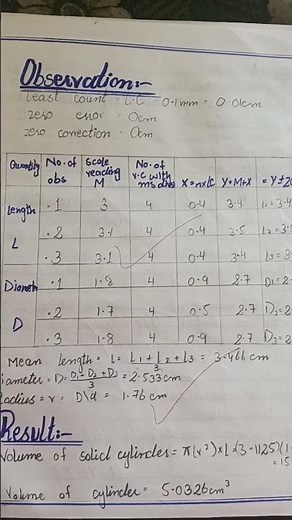 Observation:-
Least count = L.C = 0.1mm = 0.01cm
zero error = 0cm
zero correction = 0cm
Quantity No. of obs Scale reading M No. of v.c with ms div X = nxLC Y=M+X = Y±Z
Length .1 3 4 0.4 3.4 L1=3.4
L .2 3.1 4 0.4 3.5 L2=3.
.3 3.1 4 0.4 3.4 L3=3
Diameter .1 1.8 4 0.9 2.7 D1=2
D .2 1.7 4 0.5 2.7 D2=2
.3 1.8 4 0.9 2.7 D3=2
Mean length = L = L1+L2+L3/3 = 3.466cm
iameter = D = D1+D2+D3/3 = 2.533cm
adius = r = D\d = 1.76cm
Result:-
Volume of solid cylinder = π(r²)×L=(3.1125)(1
=15
Volume of cylinder = 5.0326cm³